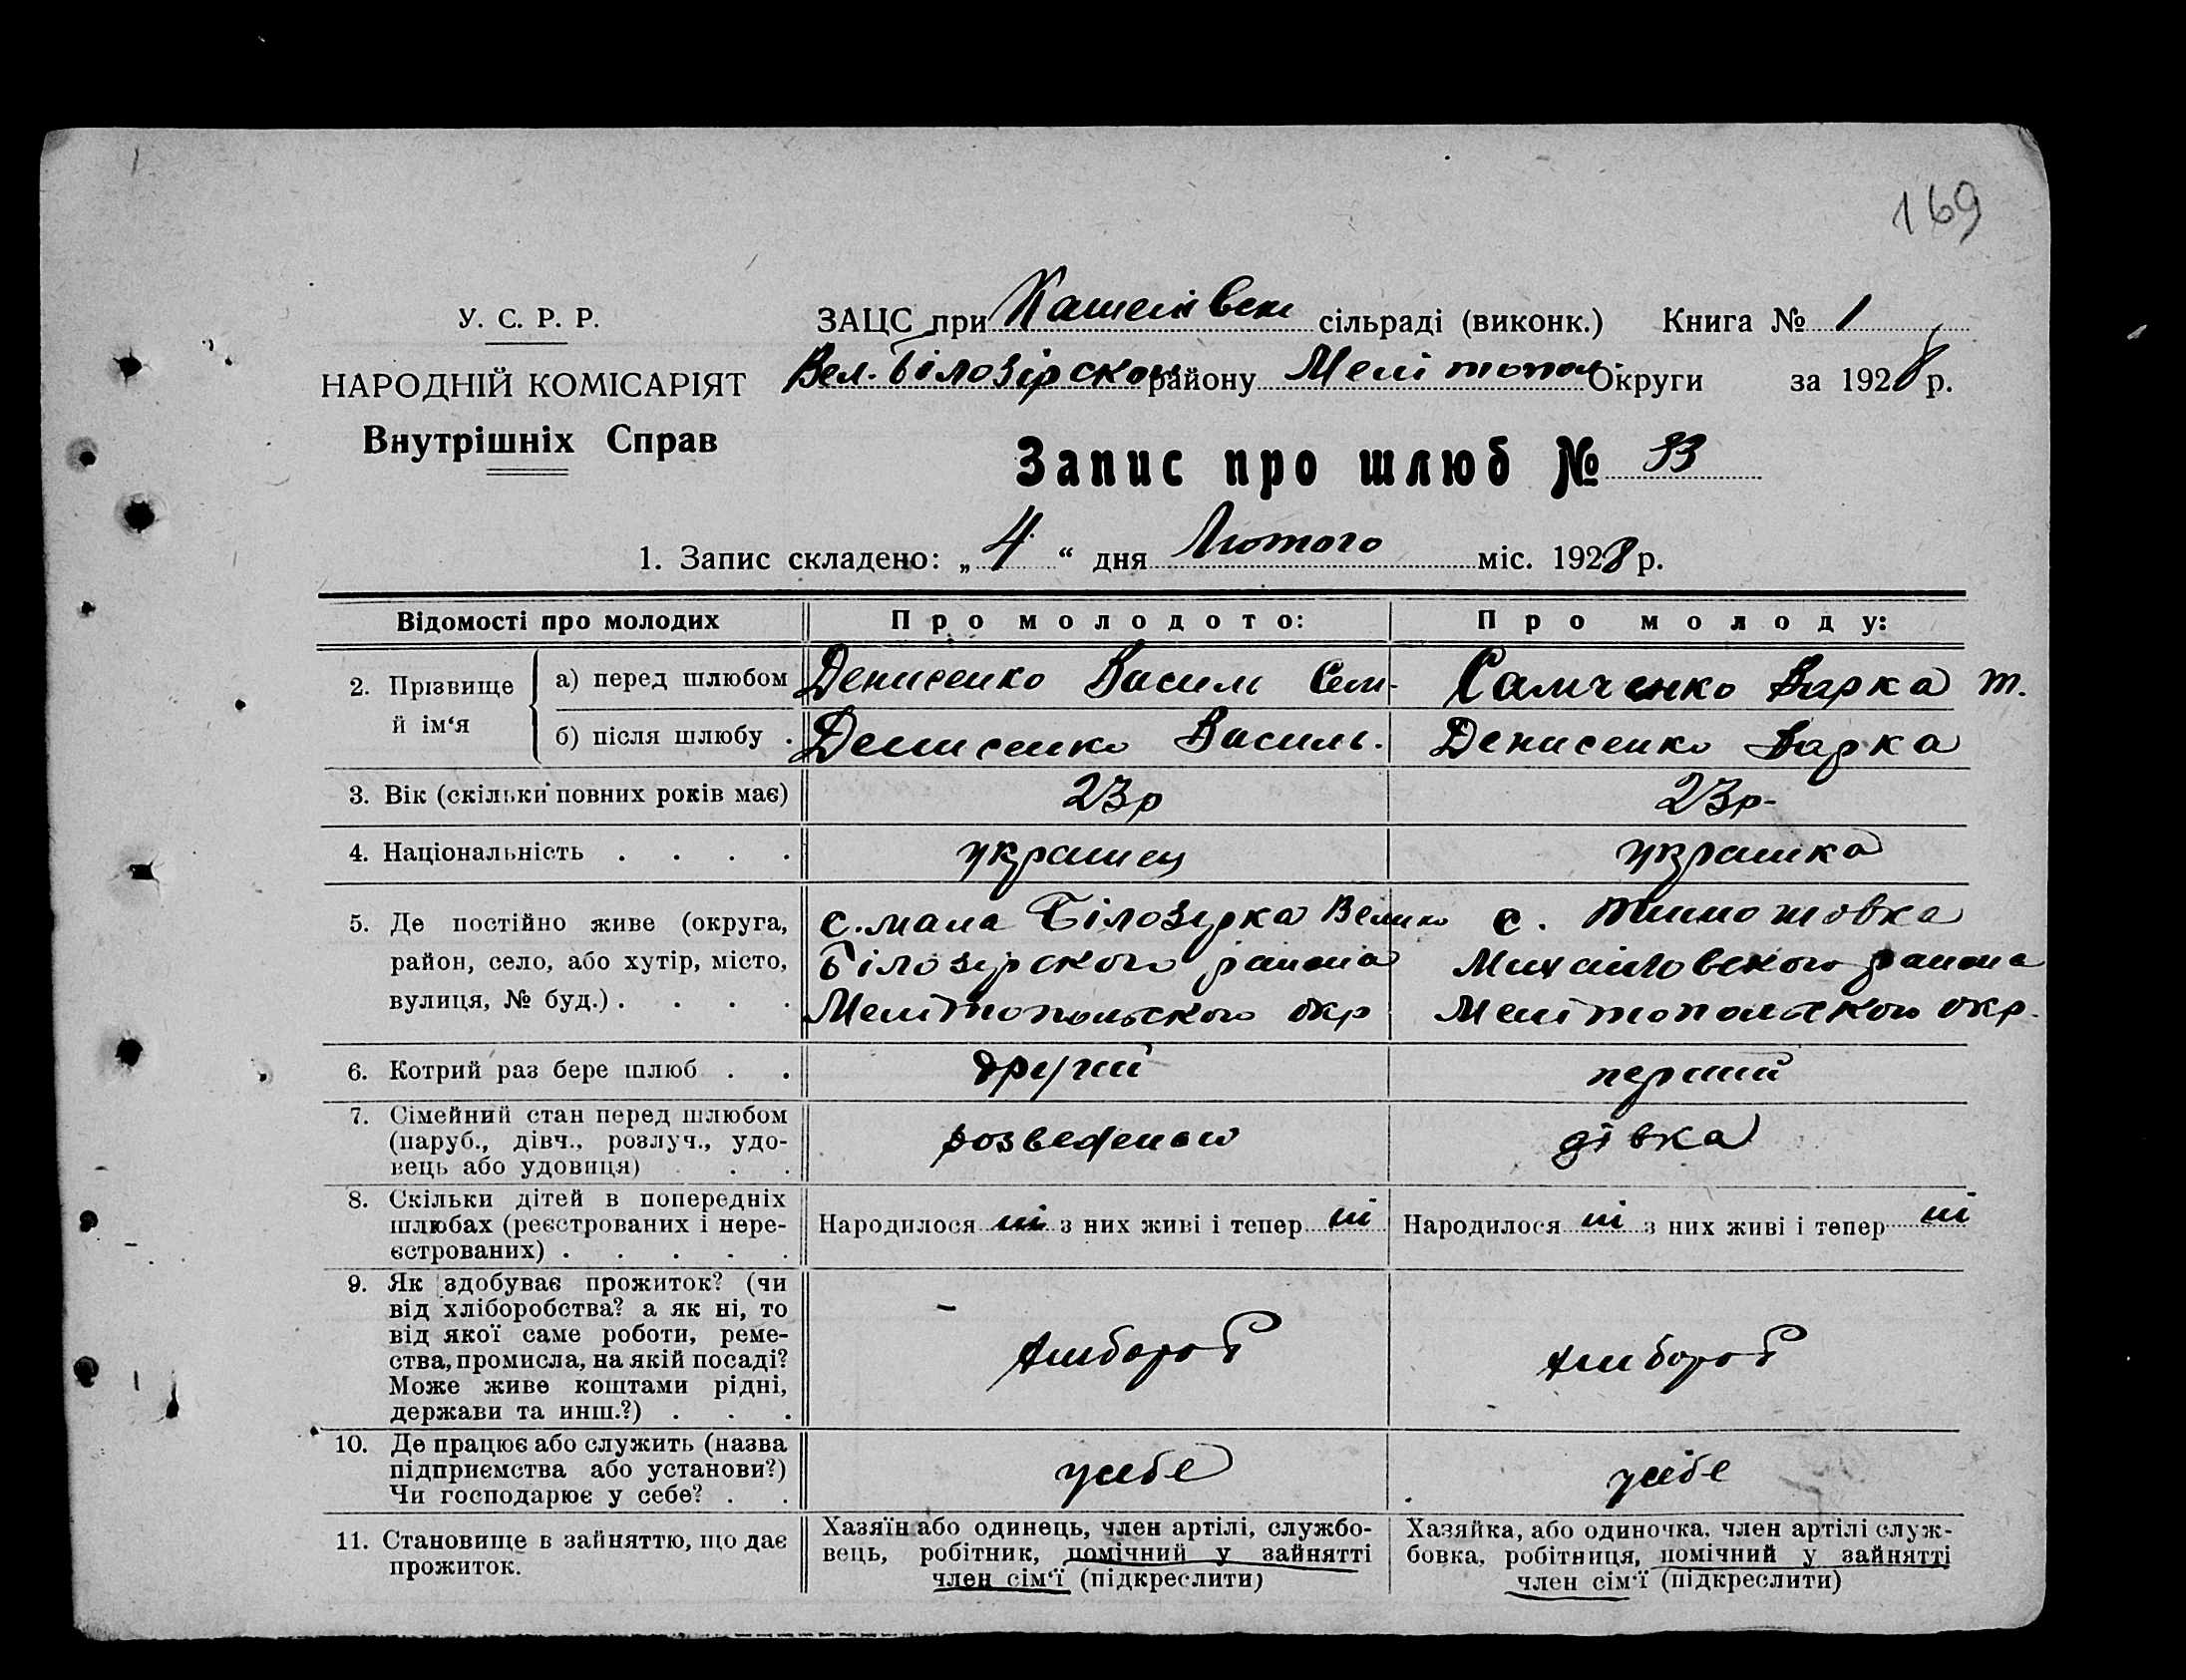 169
У. С. Р. Р.
НАРОДНІЙ КОМІСАРІЯТ
Внутрішніх Справ
ЗАЦС при сільраді (виконк.) Книга № 1
Вел. Білозірского району Мелітопол Округи за 1928 р.
Запис про шлюб № 33
1. Запис складено: „ 4 “ дня Лютого міс. 1928 р.
Відомості про молодих
Про молодото:
Про молоду:
2. Прізвище й ім‘я
а) перед шлюбом
Денисенко Василь Сем.
Самченко Варка Т.
б) після шлюбу .
Денисенко Василь.
Денисенко Варка
3. Вік (скільки повних років має)
23р
23р-
4. Національність . . . .
украинец
украинка
5. Де постійно живе (округа,
район, село, або хутір, місто,
вулиця, № буд.) . . . .
с. мала Білозирка Велико
Білозирского района
Мелітопольского окр
с. Тимошовка
Михайловского района
Мелітопольского окр.
6. Котрий раз бере шлюб . .
другий
перший
7. Сімейний стан перед шлюбом
(паруб., дівч., розлуч., удо-
вець або удовиця) . .
розведений
дівка
8. Скільки дітей в попередніх
шлюбах (реєстрованих і нере-
єстрованих) . . . . .
Народилося ні з них живі і тепер ні
Народилося ні з них живі і тепер ні
9. Як здобуває прожиток? (чи
від хліборобства? а як ні, то
від якої саме роботи, реме-
ства, промисла, на якій посаді?
Може живе коштами рідні,
держави та инш.?) . . .
хлибороб
хлибороб
10. Де працює або служить (назва
підприємства або установи?)
Чи господарює у себе? . .
у себе
у себе
11. Становище в зайняттю, що дає
прожиток.
Хазяїн або одинець, член артілі, службо-
вець, робітник, помічний у зайнятті
член сім‘ї (підкреслити)
Хазяйка, або одиночка, член артілі служ-
бовка, робітниця, помічний у зайнятті
член сім‘ї (підкреслити)